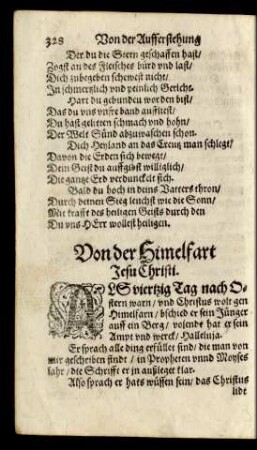 328 Von der Aufferstehung
Der du die Stern geschaffen hast/
Zogst an des Fleisches bürd vnd last/
Dich zubegeben schewest nicht/
In schmertzlich vnd peinlich Gericht.
Hart du gebunden worden bist/
Das du vns vnsre band auflöst/
Du hast gelitten schmach vnd hohn/
Der Welt Sünd abzuwaschen schon.
Dich Heyland an das Creutz man schlegt/
Davon die Erden sich bewegt/
Dein Geist du auffgibst williglich/
Die gantze Erd verdunckelt sich.
Bald du hoch in deins Vatters thron/
Durch deinen Sieg leuchst wie die Sonn/
Mit krafft des heiligen Geists durch den
Du vns HErr wollest heiligen.
Von der Himelfart
Jesu Christi.
ALS viertzig Tag nach O-
stern warn/ vnd Christus wolt gen
Himelfarn/ bschied er sein Jünger
auff ein Berg/ volendt hat er sein
Ampt vnd werck/ Halleluja.
Er sprach alle ding erfüllet sind/ die man von
mir geschriben findt/ in Propheten vnnd Moyses
lahr/ die Schrifft er in außleget klar.
Also sprach er hats müssen sein/ das Christus
lidt